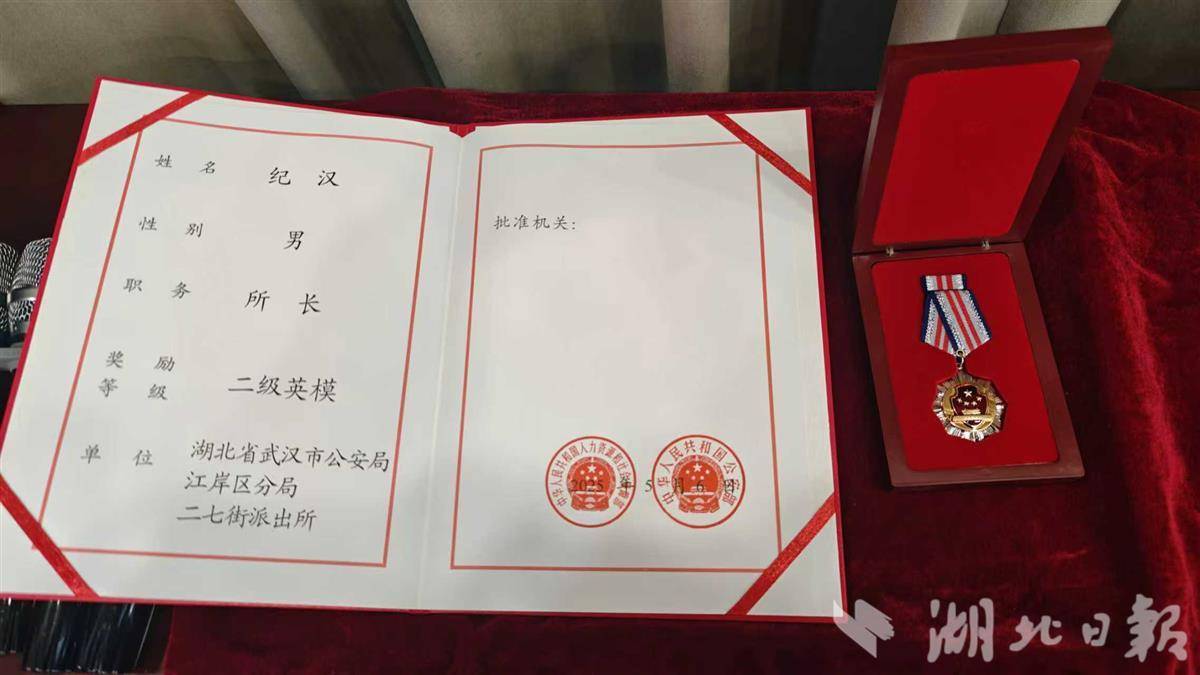 姓 名 纪 汉
性 别 男
职 务 所 长
奖 励
等 级 二级英模
单 位 湖北省武汉市公安局
江岸区分局
二七街派出所
批准机关：
中华人民共和国人力资源和社会保障部
中华人民共和国公安部
2025 年 5 月 6 日
湖北日報